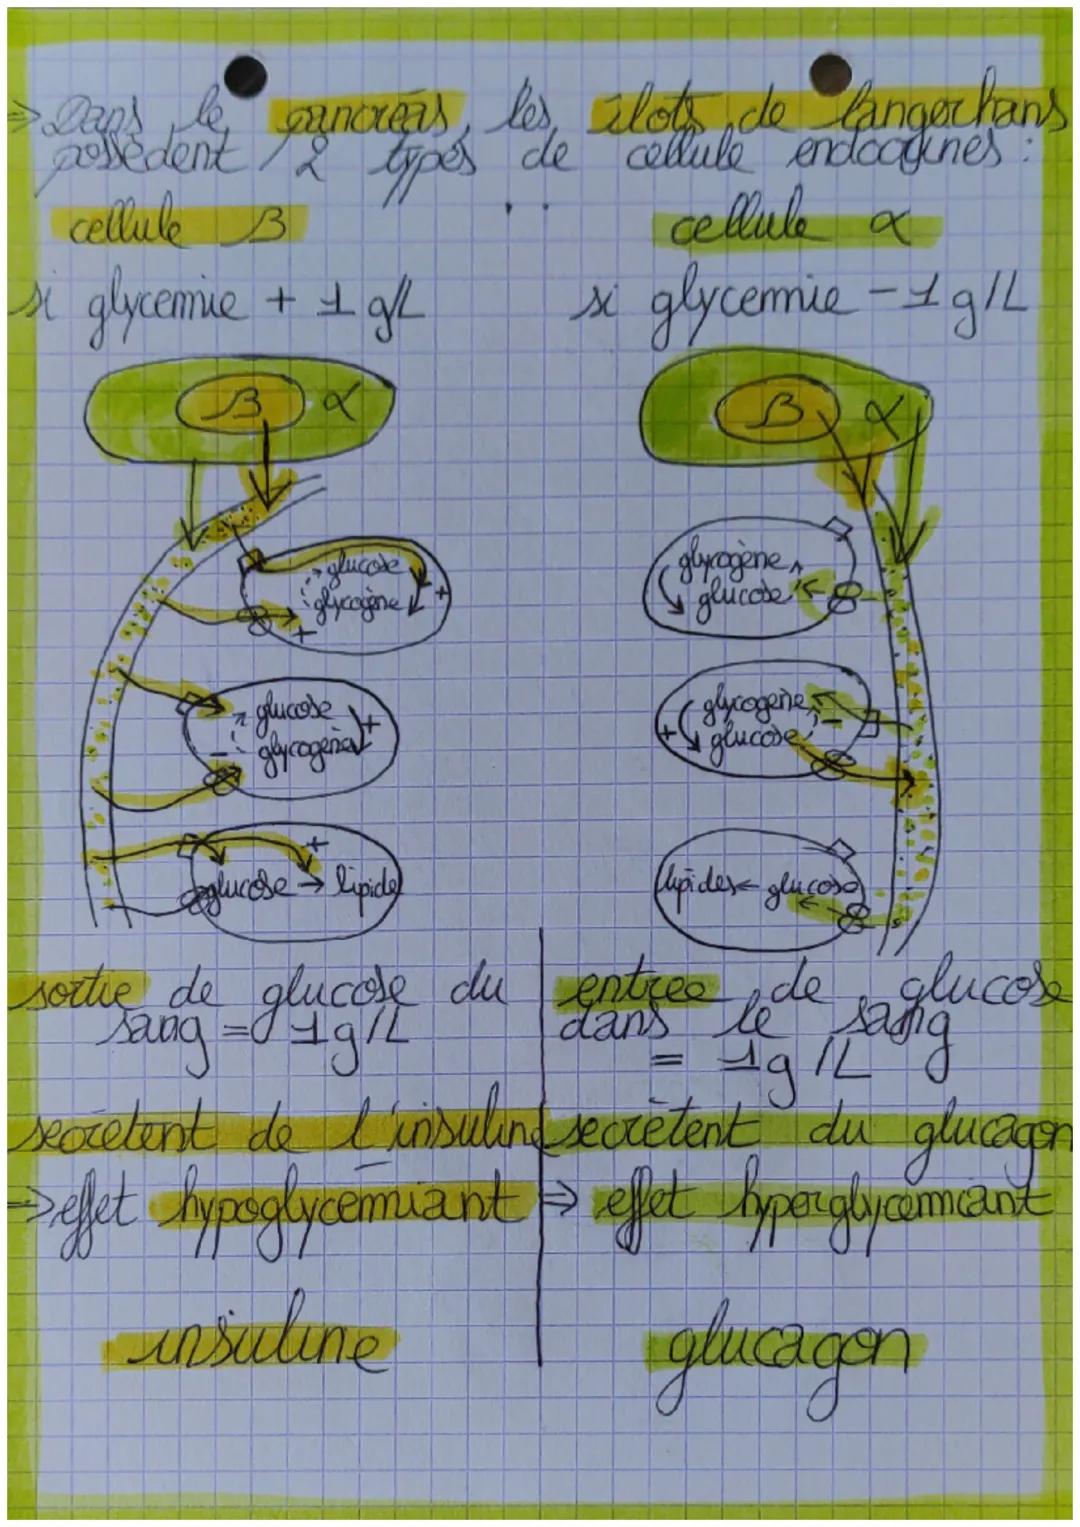 ⇒ Dans le pancréas, les ilots de langerhans
possèdent 2 types de cellule endocrines :
cellule β
cellule α
si glycemie + 1 g/L
si glycemie - 1 g/L
β α
β α
glucose
glycogène +
+
glycogène
glucose
glucose +
glycogène
-
glycogène -
+ glucose
+
glucose → lipide
lipides ← glucose
sortie de glucose du
sang = 1g/L
entree de glucose
dans le sang
= 1g/L
secrètent de l'insuline
secrètent du glucagon
⇒ effet hypoglycemiant
⇒ effet hyperglycemiant
insuline
glucagon